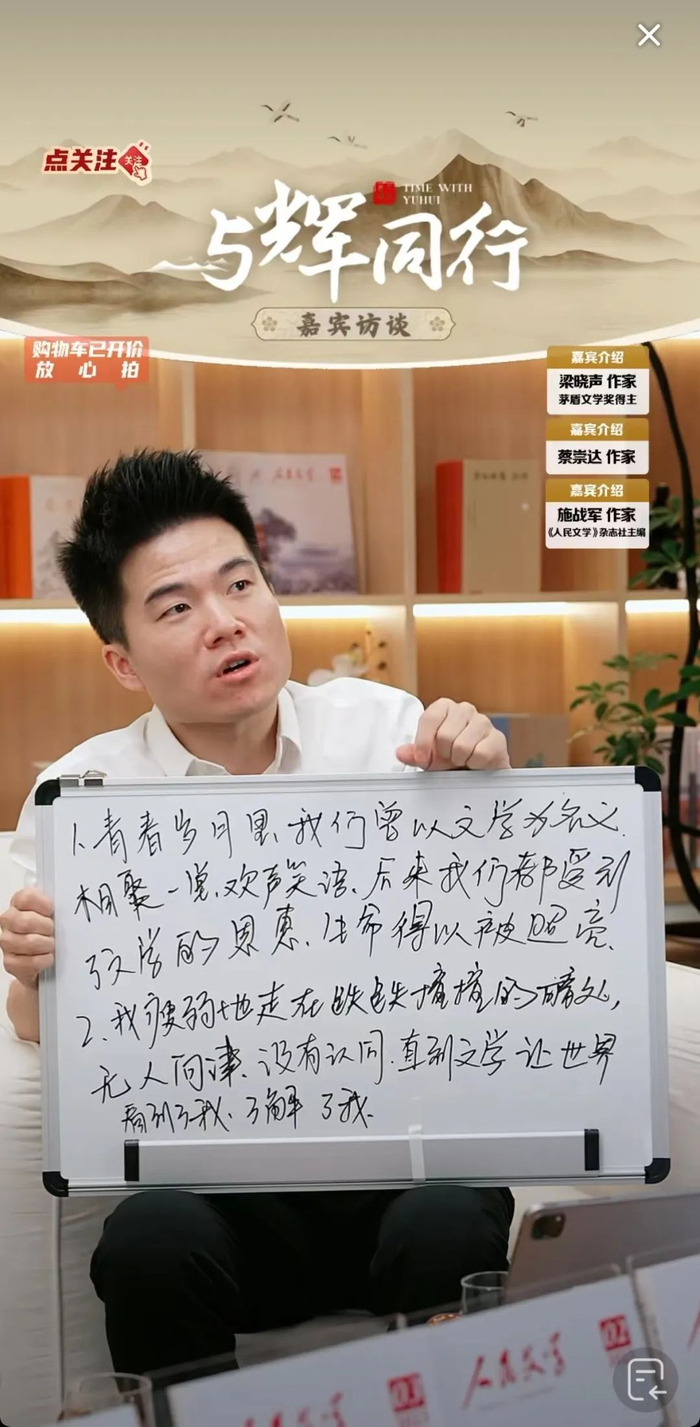 点关注
关注
TIME WITH
YUHUI
与辉同行
嘉宾访谈
购物车已开价
放心拍
嘉宾介绍
梁晓声 作家
茅盾文学奖得主
嘉宾介绍
蔡崇达 作家
嘉宾介绍
施战军 作家
《人民文学》杂志社主编
人民文学
1、青春岁月里、我们曾以文学为名义、
相聚一堂、欢声笑语、后来我们都受到
了文学的恩惠、生命得以被照亮、
2、我瘦弱地走在跌跌撞撞的暗处,
无人问津、没有认同、直到文学让世界
看到了我、了解了我、
人民文学
03
02